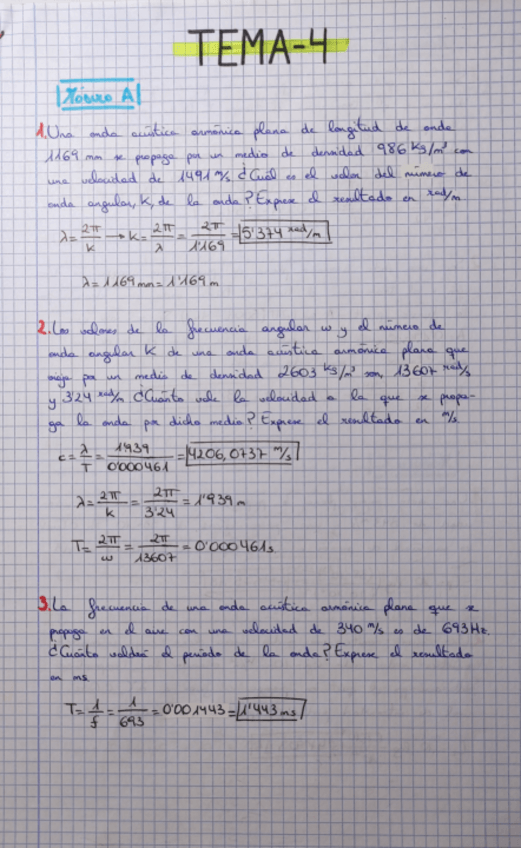 TEMA-4
MÓDULO A
1. Una onda acústica armónica plana de longitud de onda
1169 mm se propaga por un medio de densidad 986 Kg/m³ con
una velocidad de 1491 m/s ¿Cuál es el valor del número de
onda angular, K, de la onda? Exprese el resultado en rad/m
λ = 2π/k → k = 2π/λ = 2π/1'169 = 5'374 rad/m
λ = 1169 mm = 1'169 m
2. Los valores de la frecuencia angular ω y el número de
onda angular K de una onda acústica armónica plana que
viaja por un medio de densidad 2603 Kg/m³ son, 13607 rad/s
y 3'24 rad/m ¿Cuánto vale la velocidad a la que se propa-
ga la onda por dicho medio? Exprese el resultado en m/s
c = λ/T = 1'939/0'000461 = 4206,0737 m/s
λ = 2π/k = 2π/3'24 = 1'939 m
T = 2π/ω = 2π/13607 = 0'000461 s
3. La frecuencia de una onda acústica armónica plana que se
propaga en el aire con una velocidad de 340 m/s es de 693 Hz.
¿Cuánto valdrá el periodo de la onda? Exprese el resultado
en ms
T = 1/f = 1/693 = 0'001443 = 1'443 ms